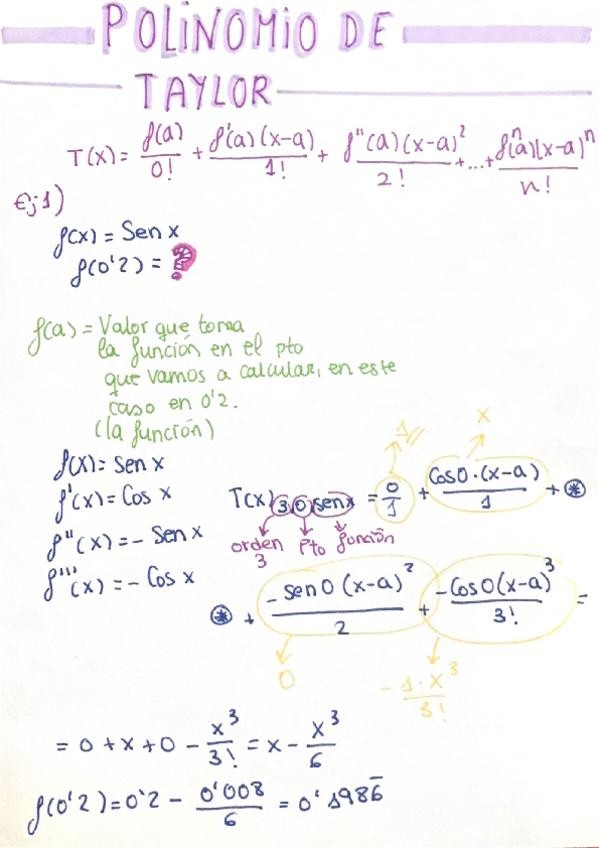 POLINOMIO DE
TAYLOR
T(x) = f(a)/0! + f'(a)(x-a)/1! + f''(a)(x-a)²/2! + ... + fⁿ(a)(x-a)ⁿ/n!
Ej 1)
f(x) = Sen x
f(0'2) = ?
f(a) = Valor que toma
la función en el pto
que vamos a calcular, en este
caso en 0'2.
(la función)
f(x) = Sen x
f'(x) = Cos x
f''(x) = - Sen x
f'''(x) = - Cos x
1//
x
T(x) 3,0,senx = 0/1 + Cos0·(x-a)/1 + ⊛
orden 3
Pto
función
⊛ + - sen0 (x-a)²/2 + -Cos0(x-a)³/3! =
0
- 1·x³/3!
= 0 + x + 0 - x³/3! = x - x³/6
f(0'2) = 0'2 - 0'008/6 = 0'1986̅